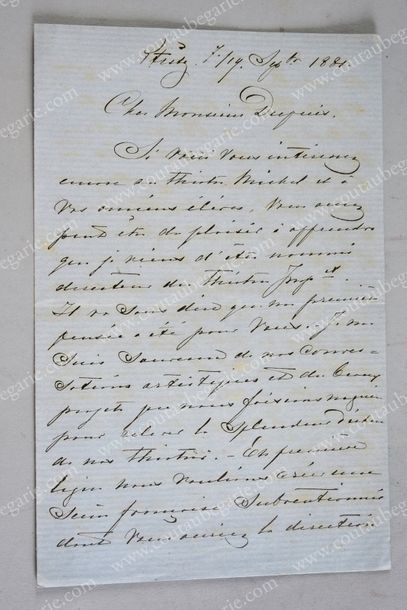 7/19 Sept 1881.
Cher Monsieur Dupuis.
Si vous vous intéressez
encore au théâtre Michel et à
vos anciens élèves, vous aurez
peut être du plaisir à apprendre
que je viens d'être nommé
directeur du théâtre
Il va sans dire que ma première
pensée a été pour vous. Je me
suis souvenu de nos conver-
sations artistiques et de
projets que nous faisions
pour relever la splendeur
de nos théâtres. - En première
ligne nous voulions créer une
scène française subventionnée
dont vous auriez la direction
www.coutaubegarie.com